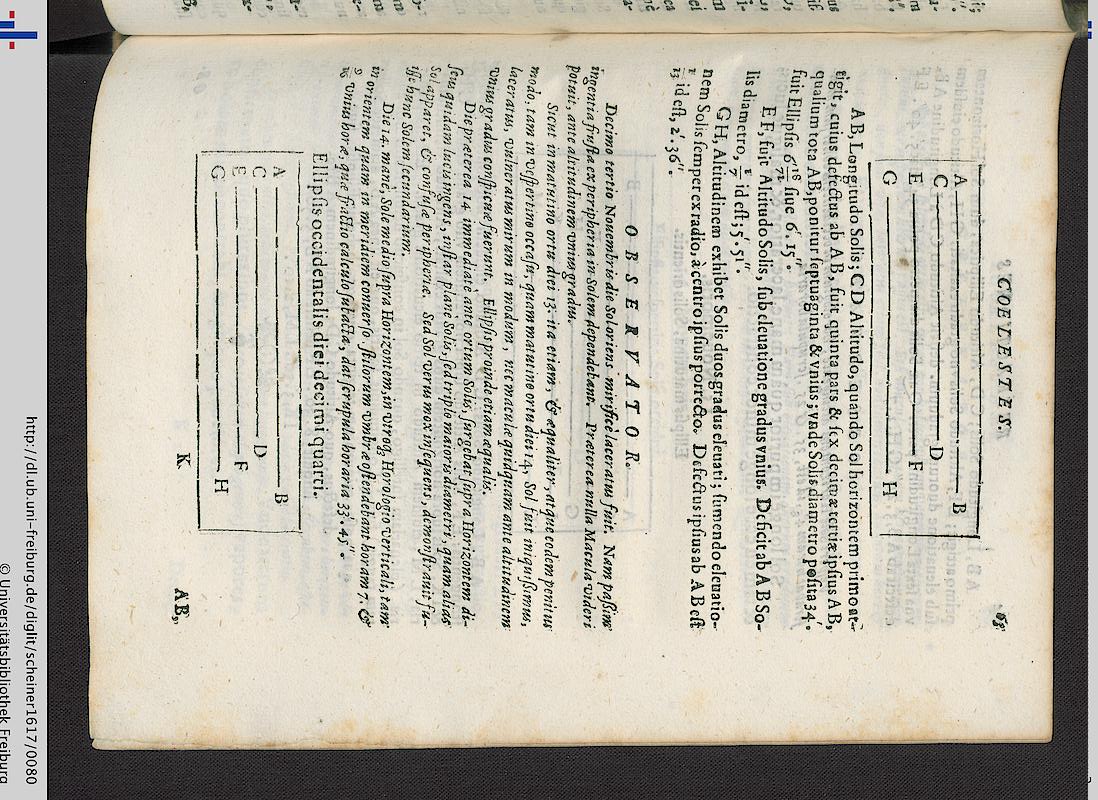 COELESTES.
A B
C D
E F
G H
AB, Longitudo Solis; CD Altitudo, quando Sol horizontem primo at-
tigit, cuius defectus ab AB, fuit quinta pars & sex decimætertiæ ipsius AB,
qualium tota AB, ponitur septuaginta & vnius; vnde Solis diametro posita 34.'
fuit Ellipsis 6' 18/71 siue 6'. 15".
EF, fuit Altitudo Solis, sub eleuatione gradus vnius. Deficit ab AB So-
lis diametro, 1/7 id est; 5'. 51".
GH, Altitudinem exhibet Solis duos gradus eleuati; sumendo eleuatio-
nem Solis semper ex radio, à centro ipsius porrecto. Defectus ipsius ab AB est
1/13 id est, 2'. 36".
OBSERVATOR.
Decimo tertio Nouembris die Sol oriens mirificè laceratus fuit. Nam paßim
ingentia frusta ex peripheria in Solem dependebant. Præterea nulla Macula videri
potuit, ante altitudinem vnius gradus.
Sicut in matutino ortu diei 13. ita etiam, & æqualiter, atque eodem penitus
modo, tam in vespertino occasu, quam matutino ortu diei 14, Sol fuit iniquissimus,
laceratus, vulneratus mirum in modum, nec maculæ quidquam ante altitudinem
vnius gradus conspicuæ fuerunt. Ellipsis proinde etiam æqualis.
Die præterea 14. immediate ante ortum Solis, surgebat supra Horizontem di-
scus quidam lucis ingens, instar plane Solis, sed triplo maioris diametri, quam alias
Sol apparet, & confusæ peripheriæ. Sed Sol verus mox insequens, demonstrauit fu-
isse hunc Solem secundarium.
Die 14. mane, Sole medio supra Horizontem, in vtroq; Horologio verticali, tam
in orientem quam in meridiem conuerso stilorum vmbræ ostendebant horam 7. &
9/16 vnius horæ, quæ fractio calculo subacta, dat scrupula horaria 33'. 45".
Ellipsis occidentalis diei decimi quarti.
A B
C D
E F
G H
K
AB,
http://dl.ub.uni-freiburg.de/diglit/scheiner1617/0080
© Universitätsbibliothek Freiburg